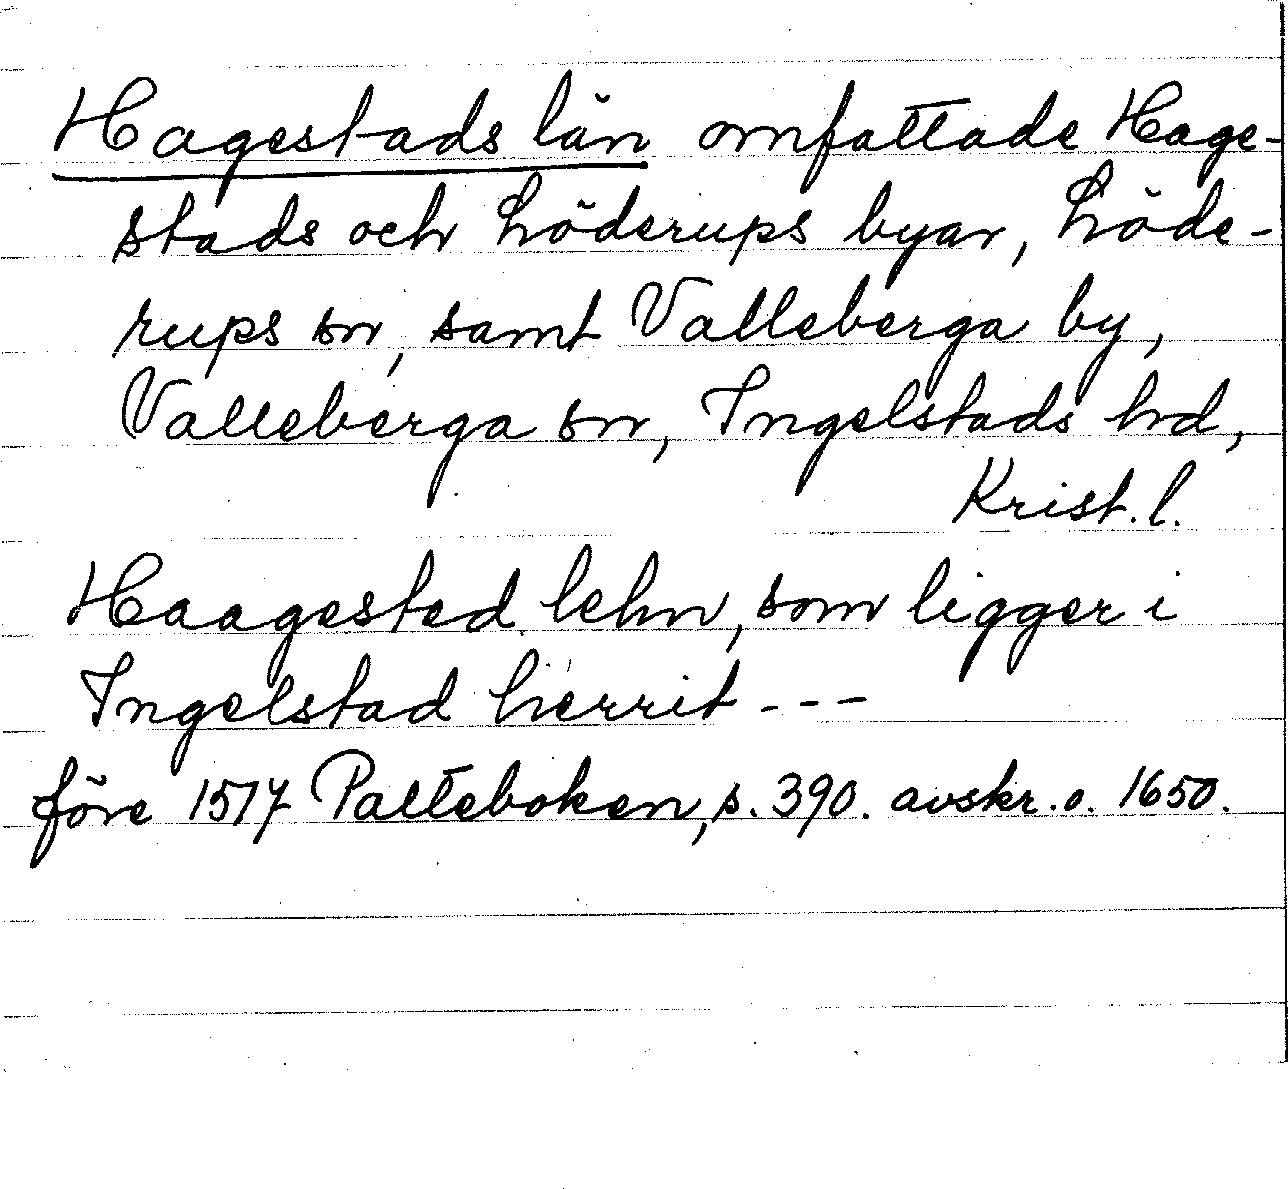 Hagestads län omfattade Hage-
stads och Löderups byar, Löde-
rups sn, samt Valleberga by,
Valleberga sn, Ingelstads hd,
Krist. l.
Haagested lehn, som ligger i
Ingelstad herrit ---
före 1517 Palteboken, s. 390. avskr. o. 1650.